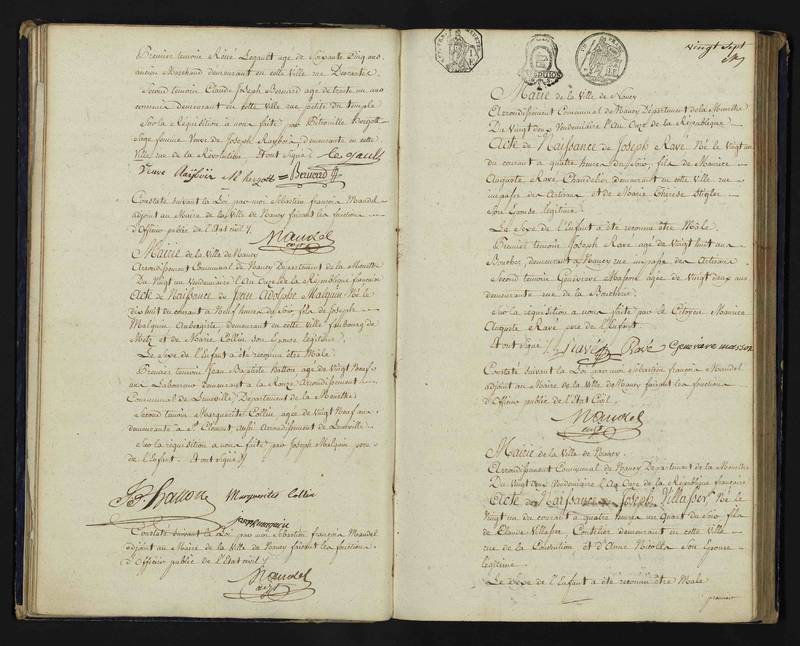 Premier temoin René Legault agé de Soixante Cinq ans
ancien Marchand demeurant en cette Ville rue Descartes
Second temoin Claude Joseph Bernard agé de trente un ans
commis demeurant en cette Ville rue petite du temple
Sur la Réquisition à nous faite par Pétronille Hergott
Sage femme Veuve de Joseph demeurante en cette
Ville rue de la Révolution. Et ont Signé
Le gault
Veuve M hergott = Bernard
Constaté suivant la Loi par moi Sébastien françois Mandel
adjoint au Maire de la Ville de Nancy faisant les fonctions
d'Officier public de l'Etat civil
Mandel
adjt
Mairie de la Ville de Nancy
Arrondissement Communal de Nancy Département de la Meurthe
Du Vingt un Vendemiaire l'An Onze de la République française
Acte de Naissance de Jean Adolphe Malguin Né le
dix huit du courant à Neuf heures du Soir fils de Joseph
Malguin Aubergiste demeurant en cette Ville faubourg de
Metz et de Marie Collin son Epouse légitime
Le Sexe de l'Enfant a été reconnu être Mâle
Premier temoin Jean Baptiste Hatton agé de Vingt Neuf
ans Laboureur demeurant à la Ronze Arrondissement
Communal de Lunéville Département de la Meurthe
Second temoin Marguerite Collin agée de Vingt Neuf ans
demeurante à St Clement aussi Arrondissement de Lunéville
Sur la réquisition a nous faite par Joseph Malguin pere
de l'Enfant. Et ont signé
JB. hatton Marguerites Collin
Constaté suivant la Loi par moi Sébastien françois Mandel
adjoint au Maire de la Ville de Nancy faisant les fonctions
d'Officier public de l'Etat civil
Mandel
adjt
Vingt Sept
Mairie de la Ville de Nancy
Arrondissement Communal de Nancy Département de la Meurthe
Du Vingt deux Vendemiaire l'An Onze de la République
Acte de Naissance de Joseph Ravé Né le Vingt un
du courant à quatre heures du Soir, fils de Maurice
Auguste Ravé Chandelier demeurant en cette Ville rue
impasse des Artisans et de Marie Thérèse Stigler
Son Epouse légitime
Le Sexe de l'Enfant a été reconnu être Mâle
Premier temoin Joseph Ravé agé de Vingt huit ans
Boucher demeurant à Nancy rue impasse des Artisans
Second temoin Geneviève Masson agée de Vingt deux ans
demeurante rue de la Boucherie
Sur la réquisition a nous faite par le Citoyen Maurice
Auguste Ravé pere de l'Enfant
Et ont Signé
Ravé Geneviève masson
Constaté suivant la Loi par moi Sébastien françois Mandel
adjoint au Maire de la Ville de Nancy faisant les fonctions
d'Officier public de l'Etat Civil
Mandel
adjt
Mairie de la Ville de Nancy
Arrondissement Communal de Nancy Département de la Meurthe
Du Vingt deux Vendemiaire l'An Onze de la République française
Acte de Naissance de Joseph Villasser Né le
Vingt un du courant à quatre heures un Quart du Soir fils
de Claude Villasser demeurant en cette Ville
rue de la Constitution et d'Anne Nicolla Son Epouse
légitime
Le Sexe de l'Enfant a été reconnu être Mâle
premier